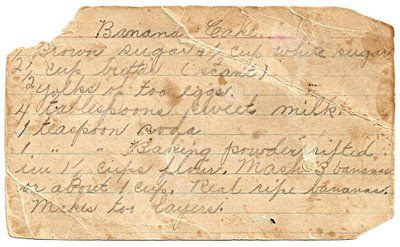 Banana Cake.
Brown sugar + ½ cup white sugar
½ cup butter (scant)
2 Yolks of too eggs.
4 tablespoons sweet milk.
1 teaspoon soda.
1 " " Baking powder sifted
in 1 cups flour. Mach 3 bananas
or about 1 cup. Real ripe bananas.
Makes too layers.